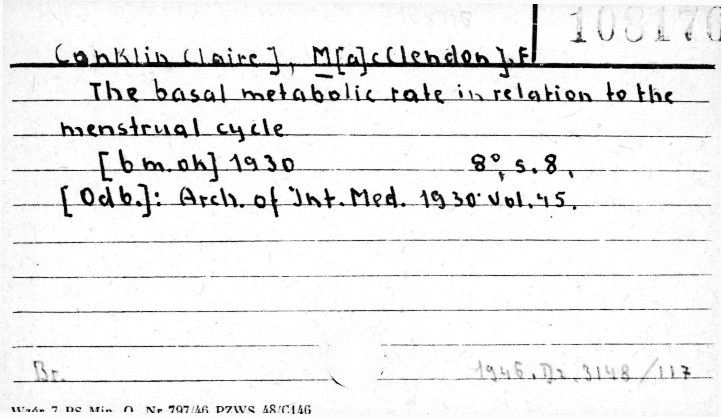 108176
Conklin Claire J., M[a]cClendon J.F.
The basal metabolic rate in relation to the
menstrual cycle
[b m. ok] 1930 8°, s. 8,
[Odb.]: Arch. of Int. Med. 1930 vol. 45.
Br. 1946. Dz. 3148/117
Wzór 7 PS Min. O. Nr 797/46 PZWS 48/C146